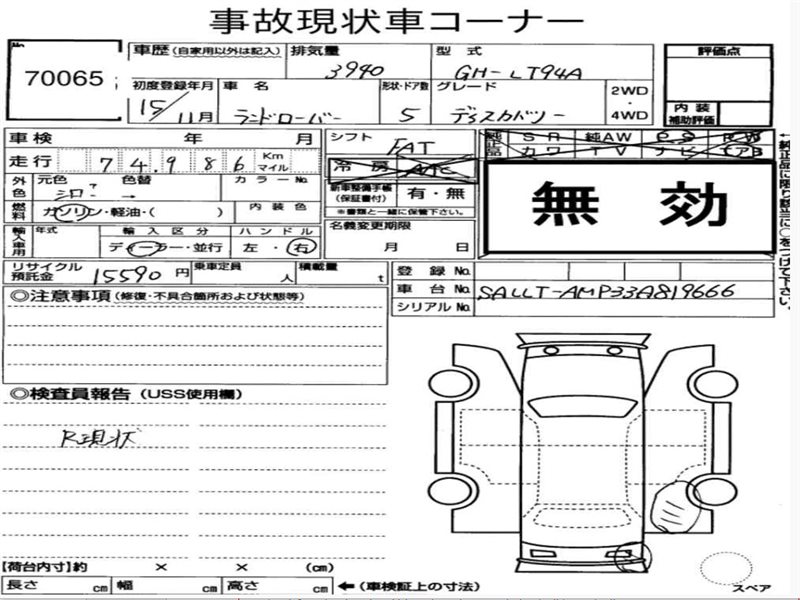 事故現状車コーナー
No
70065
車歴 (自家用以外は記入) 排気量 型式 評価点
3940 GH-LT94A
初度登録年月 車名 形状・ドア数 グレード 2WD
15/11月 ランドローバー 5 ディスカバリー ・
4WD
内装
補助評価
車検 年 月 シフト FAT
純正品 SR 純AW PS PW
カワ TV ナビ エアB
走行 7 4.9 8 6 Km
マイル
冷房 AAC
外色 元色 色替 カラーNo.
シロ →
新車整備手帳
(保証書付) 有・無
※書類と一緒に保管下さい。
燃料 ガソリン・軽油・( ) 内装色
無効
←純正品に限り該当に○をつけて下さい。
輸入車用 年式 輸入区分 ハンドル
ディーラー・並行 左・右
名義変更期限
月 日
リサイクル
預託金 15590円 乗車定員 人 積載量 t
登録No.
車台No. SALLT-AMP33A819666
シリアルNo.
◎注意事項(修復・不具合箇所および状態等)
◎検査員報告(USS使用欄)
R現状
【荷台内寸】約 × × (cm)
長さ cm 幅 cm 高さ cm ←(車検証上の寸法)
スペア